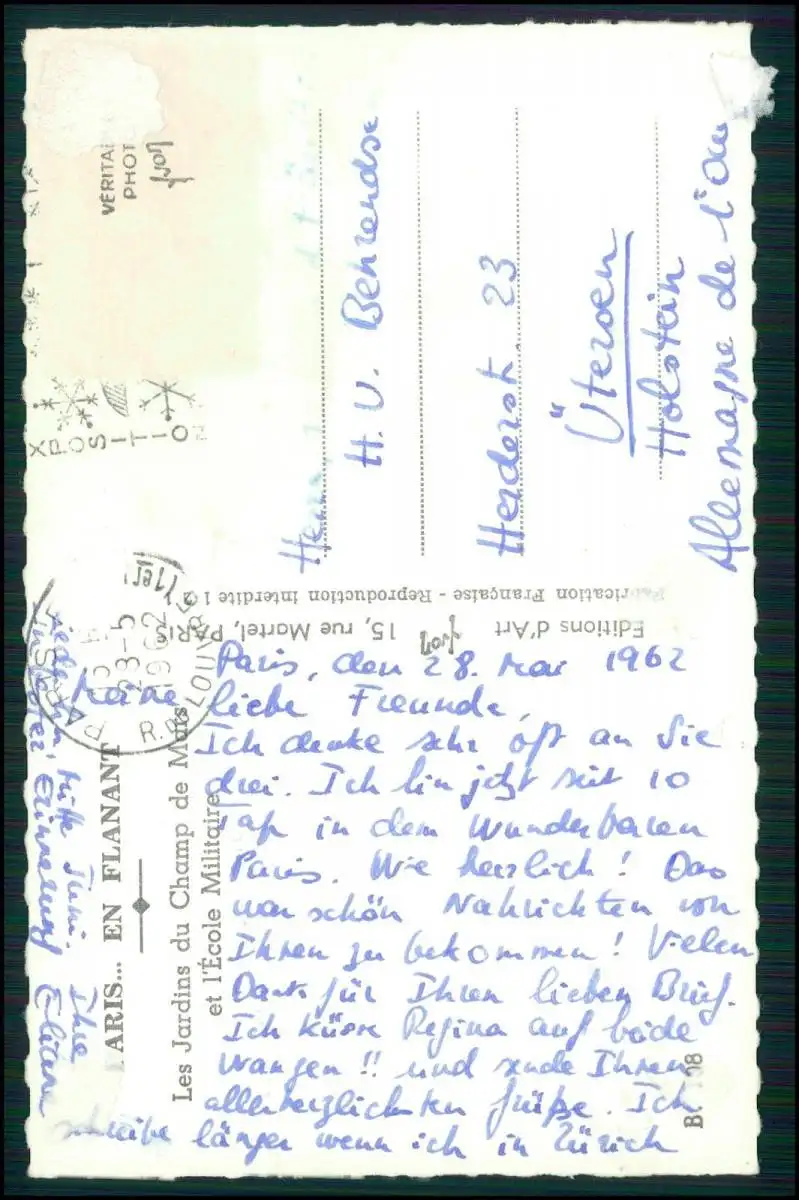 Paris, den 28. Mai 1962
Meine liebe Freunde,
Ich denke sehr oft an Sie
drei. Ich bin jetzt seit 10
Tage in dem wunderbaren
Paris. Wie herrlich! Das
war schön Nachrichten von
Ihnen zu bekommen! Vielen
Dank für Ihren lieben Brief.
Ich küsse Regina auf beide
Wangen!! und sende Ihnen
allerherzlichsten Grüße. Ich
schreibe länger wenn ich in Zürich
Mitte Juni. Ihre
Erinnerung Eliane
H. U. Behrendse
Herderst. 23
Üterсen
Holstein
Allemagne de l'Ou
VÉRITA
PHOT
yvon
XPOSITION
PARIS
23-5
1962
R. DU LOUVRE (1er)
Editions d'Art yvon 15, rue Martel, PARIS
rication Française - Reproduction interdite
ARIS... EN FLANANT
Les Jardins du Champ de Mars
et l'École Militaire